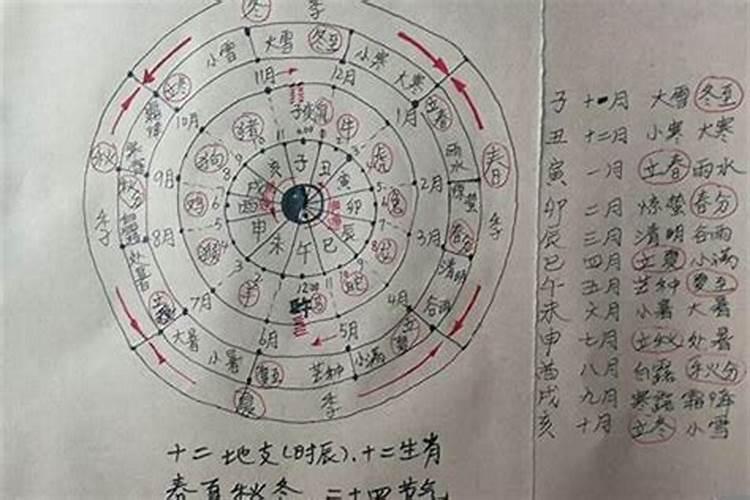 冬 季
小雪 大雪 冬至 小寒 大寒
立冬 11月 12月 1月 立春
霜降 10月 子 鼠 牛 雨水
秋 寒露 猪 虎 春
狗 亥 子 丑 寅 2月 惊蛰
秋分 9月 鸡 戌 酉 卯 兔
季 白露 8月 猴 申 未 午 巳 辰 龙 3月 春分 季
处暑 羊 马 蛇 清明
立秋 7月 12:00 4月 谷雨
大暑 6月 午 5月 立夏
小暑 夏至 芒种 小满
夏 季
子 十一月 大雪 冬至
丑 十二月 小寒 大寒
寅 一月 立春 雨水
卯 二月 惊蛰 春分
辰 三月 清明 谷雨
巳 四月 立夏 小满
午 五月 芒种 夏至
未 六月 小暑 大暑
申 七月 立秋 处暑
酉 八月 白露 秋分
戌 九月 寒露 霜降
亥 十月 立冬 小雪
十二地支(时辰)、十二生肖
春夏秋冬 二十四节气